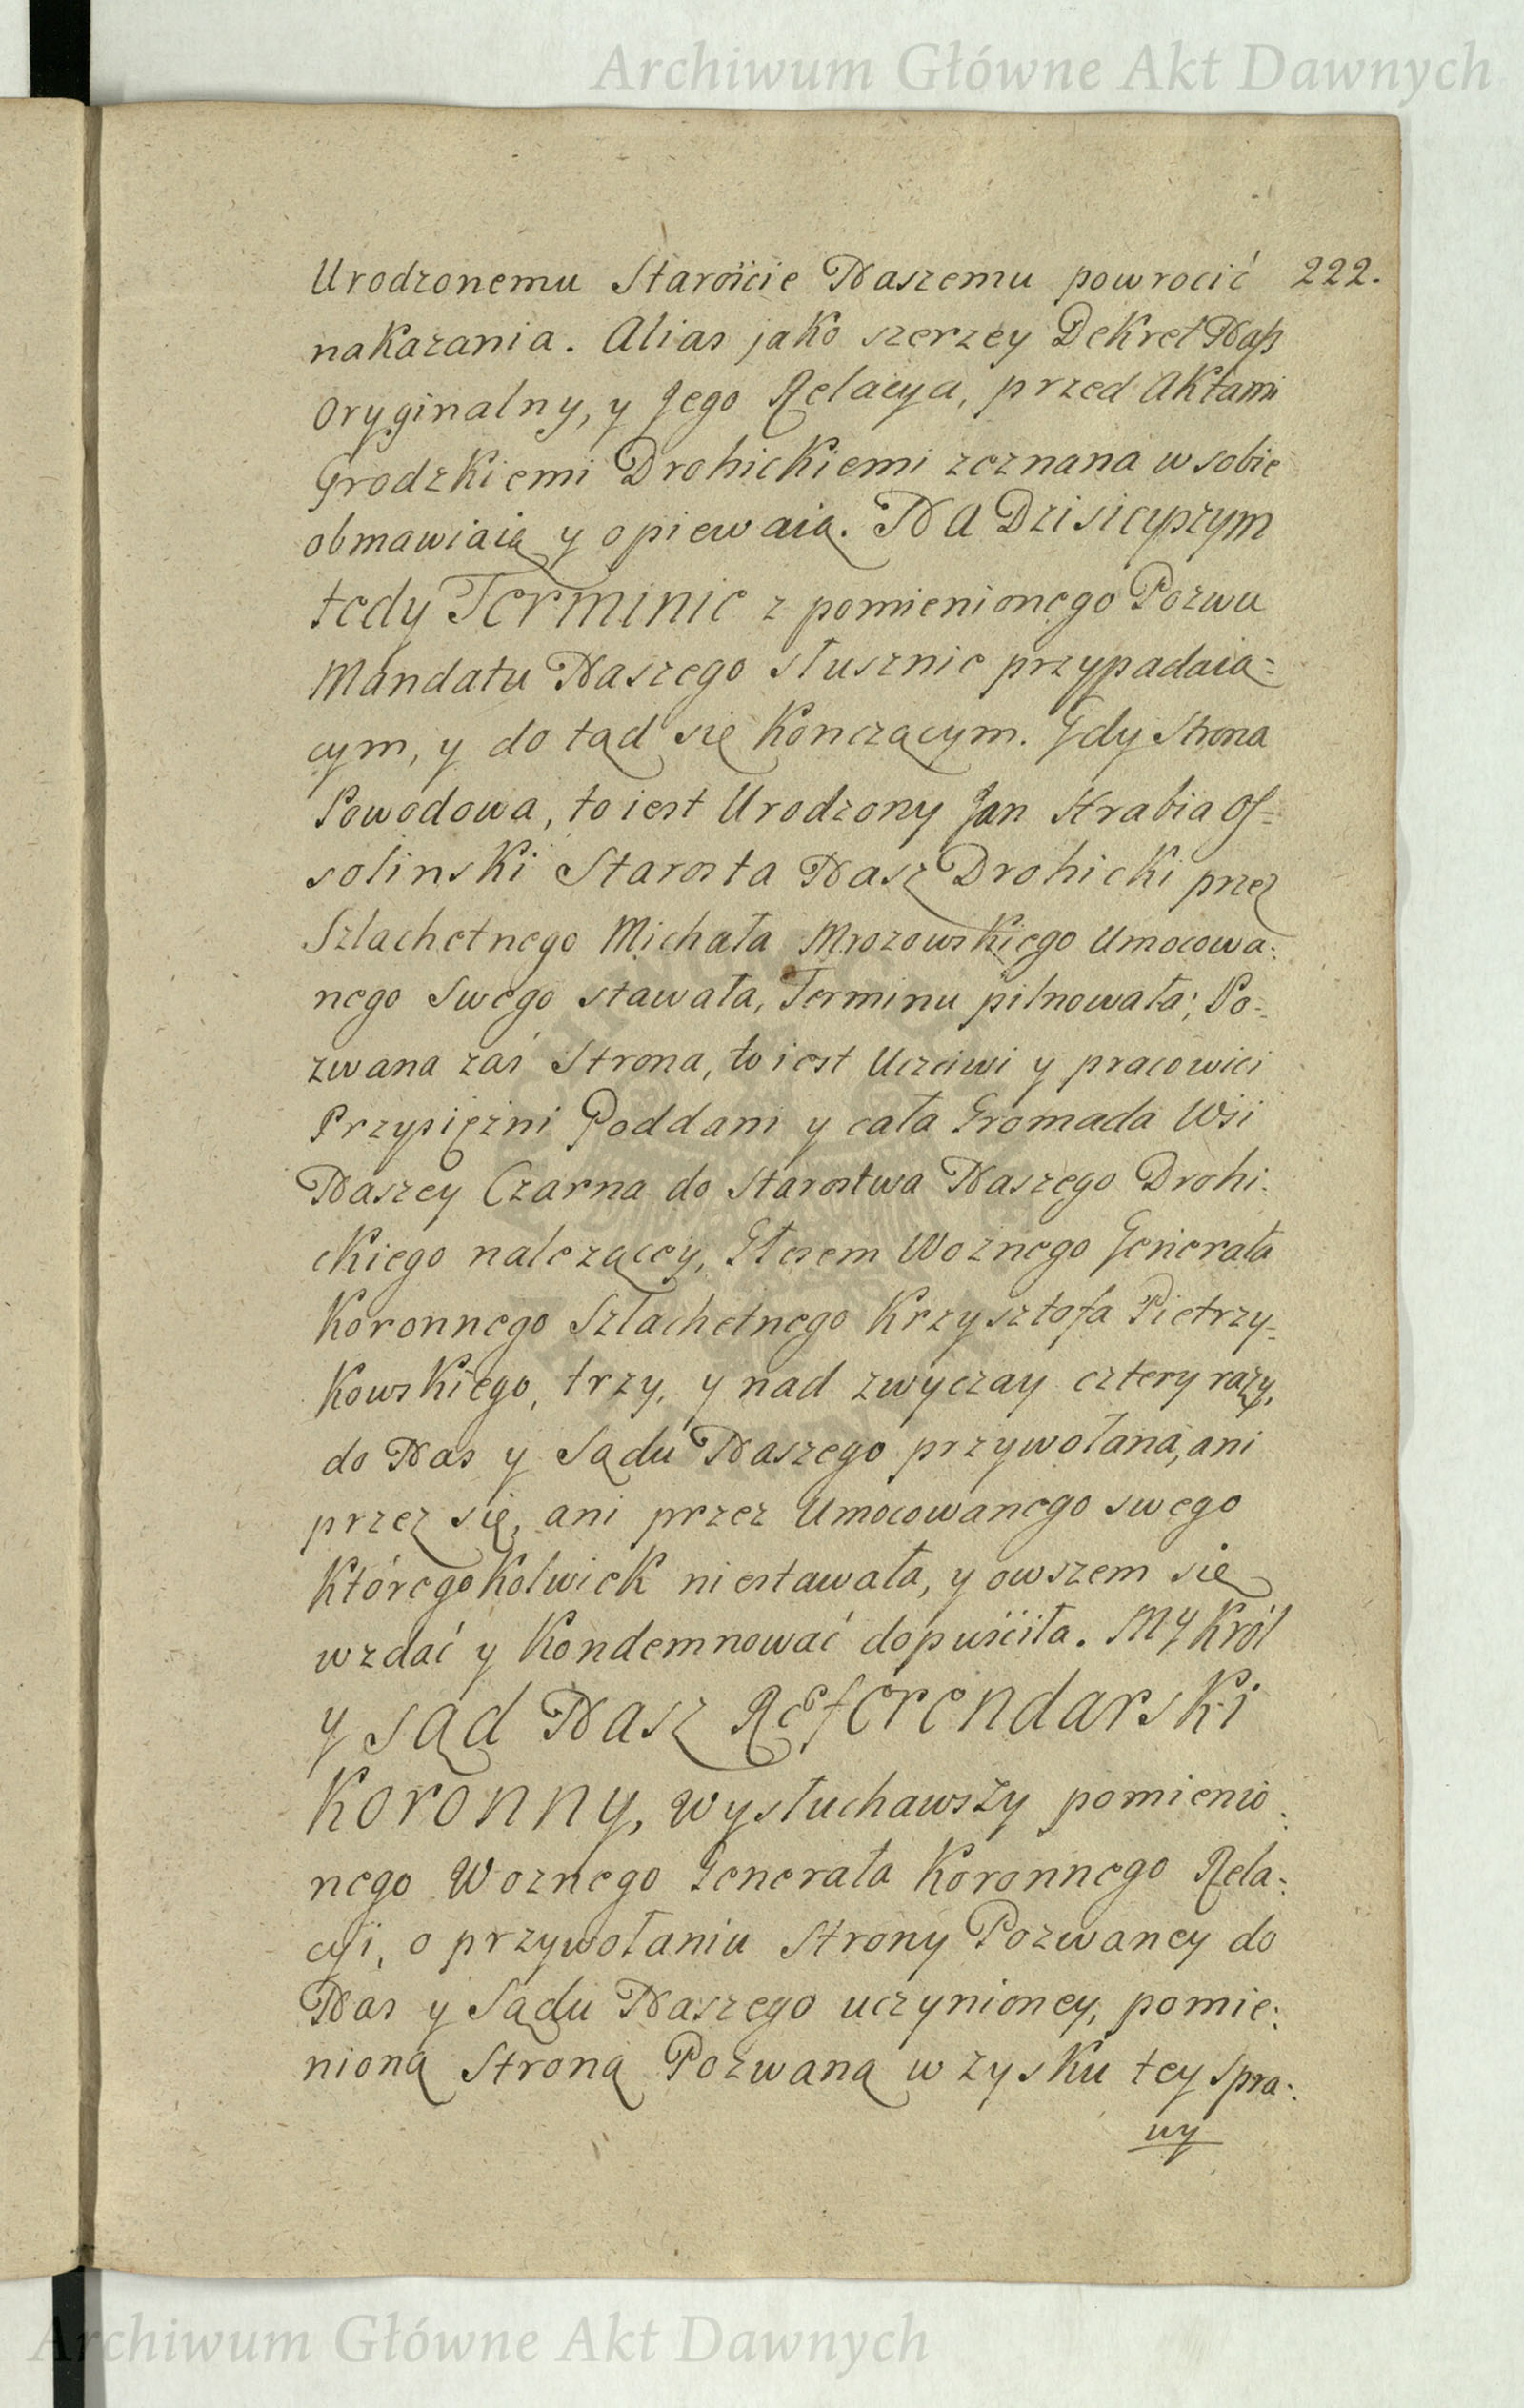 Archiwum Główne Akt Dawnych
Urodzonemu Staroście Naszemu powrocić 222.
nakazania. Alias jako szerzey Dekret Nasz
Oryginalny, y Jego Relacya, przed Aktami
Grodzkiemi Drohickiemi zeznana w sobie
obmawiaią y opiewaią. NA Dzisieyszym
tedy Terminie z pomienionego Pozwu
Mandatu Naszego słusznie przypadaią=
cym, y do tąd się kończącym. Gdy Strona
Powodowa, to iest Urodzony Jan Hrabia Os=
solinski Starosta Nasz Drohicki przez
Szlachetnego Michała Mrozowskiego Umocowa:
nego Swego stawała, Terminu pilnowała; Po=
zwana zaś Strona, to iest Uczciwi y pracowici
Przysiężni Poddani y cała Gromada Wsi
Naszey Czarna do Starostwa Naszego Drohi:
ckiego nalezącey, Głosem Woznego Generała
Koronnego Szlachetnego Krzysztofa Pietrzy=
kowskiego, trzy, y nad zwyczay cztery razy,
do Nas y Sądu Naszego przywołana, ani
przez się, ani przez Umocowanego swego
któregokolwiek niestawała, y owszem się
wzdać y kondemnować dopuściła. MY Król
y Sąd Nasz Referendarski
Koronny, wysłuchawszy pomienio:
nego Woznego Generała Koronnego Rela:
cyi, o przywołaniu Strony Pozwaney do
Nas y Sądu Naszego uczynioney, pomie:
nioną Stroną Pozwaną w zysku tey Spra:
wy
Archiwum Główne Akt Dawnych